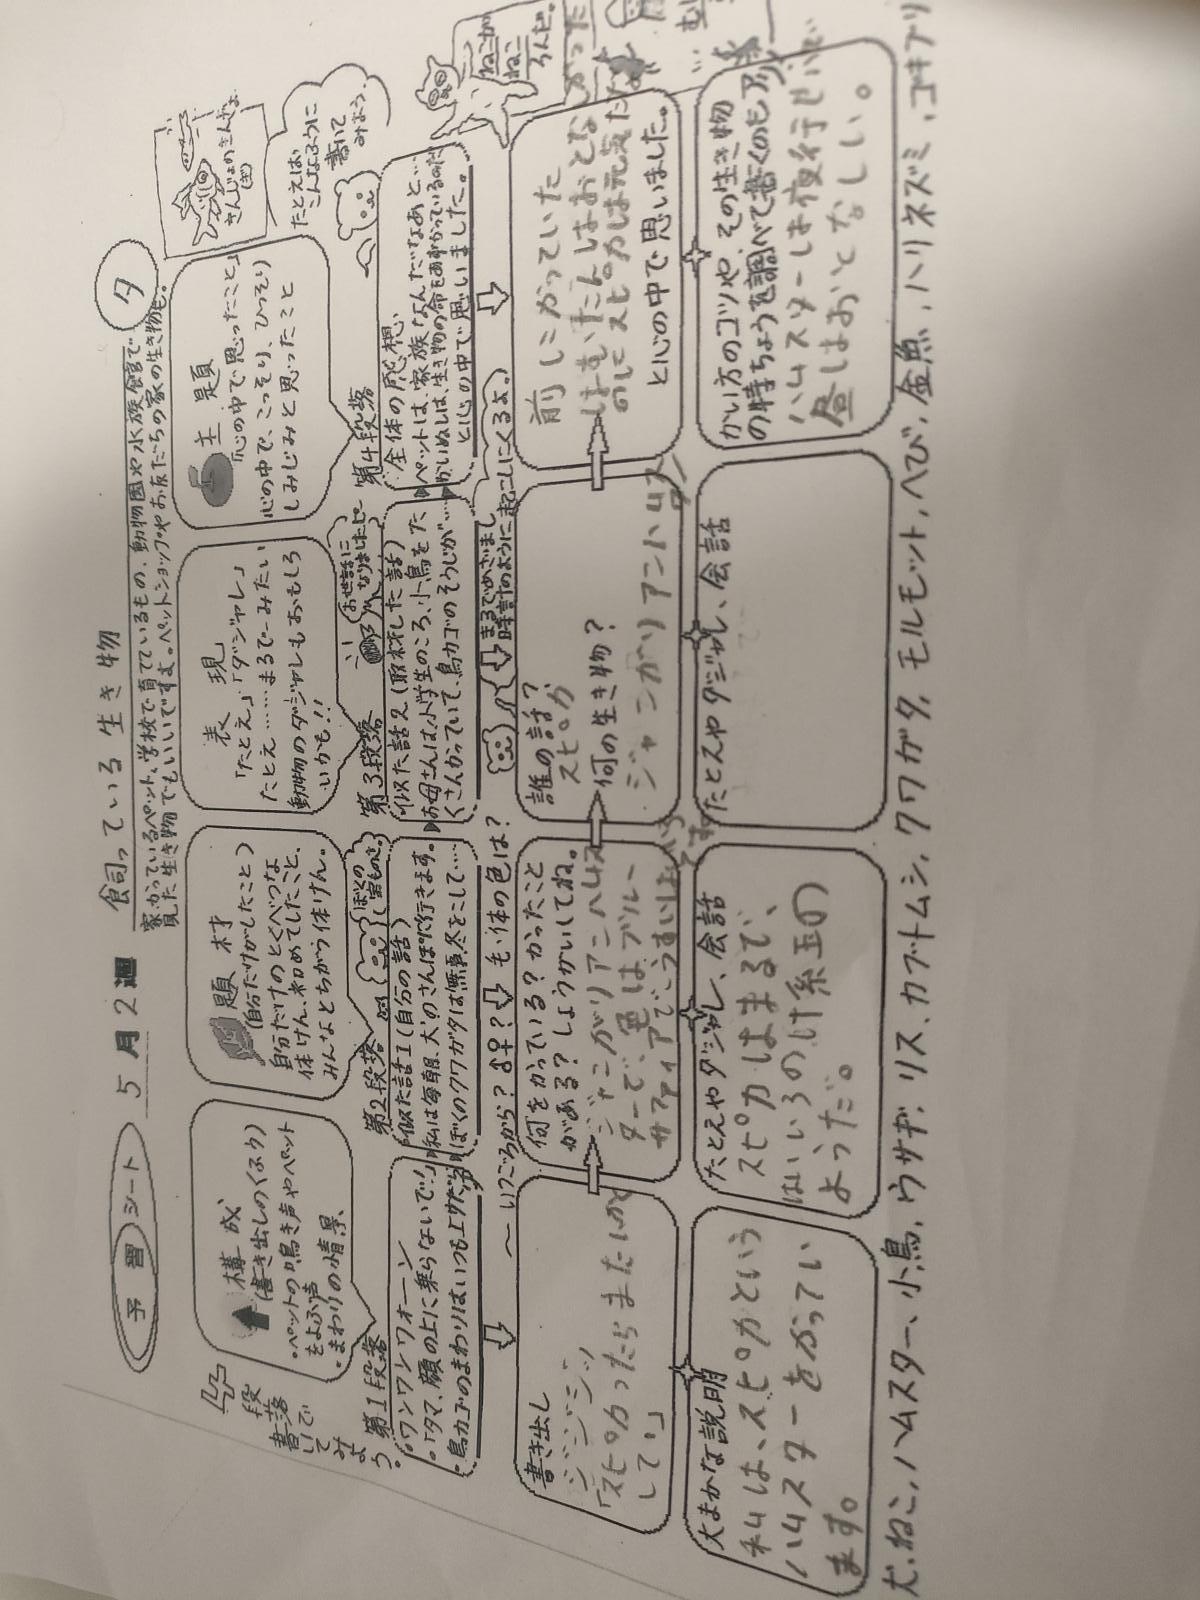 予習シート
5月2週
飼っている生き物
家でかっているペット、学校で育てているもの、動物園や水族館で
見た生き物でもいいですよ。ペットショップやお友だちの家の生き物も。
夕
4段落で
書いて
みよう。
構成
(書き出しのくふう)
・ペットの鳴き声やペット
をよぶ声
・まわりの情景、
題材
(自分だけがしたこと)
自分だけのとくべつな
体けん、初めてしたこと、
みんなとちがう体けん。
表現
「たとえ」「ダジャレ」
たとえ……まるで〜みたい
動物のダジャレもおもしろ
いかも!!
主題
「心の中で思ったこと」
心の中で、こっそり、ひっそり
しみじみと思ったこと
たとえば
こんなように
書いて
みよう。
第1段落
・ワンワンワオーン
・「タマ、顔の上に乗らないで!」
・鳥カゴのまわりはいつも
第2段落
似た話1(自分の話)
私は毎朝、犬のさんぽに行きます。
ぼくのクワガタは無事冬をこして……
ぼくの
宝もの
第3段落
似た話2(取材した話)
お母さんは小学生のころ、小鳥をた
くさんかっていて、鳥カゴのそうじが……
お世話に
なりましたピー
第4段落
全体の感想
ペットは、家族なんだなあと…
かいぬしは、生き物の命をあずかっているのだ
と心の中で思いました。
ねこが
ねこ
ろんだ。
〜いつごろから?♂♀?も・体の色は?
まるでめざまし
時計のように起こしにくるよ。
書き出し
ジジジジッ
「スピカかったらまたしめ
してい」
何をかっている?かったこと
がある?しょうかいしてね。
ジャンガリアンハムス
ターで、色はブルー
サファイアで
誰の話?
スピカ
何の生き物?
ジャンガリアンハムス
前にかっていた
はむたんはおとなしかった
のにスピカは元気だなぁ
と心の中で思いました。
大まかな説明
私は、スピカという
ハムスターをかってい
ます。
たとえやダジャレ、会話
スピカはまるで、
はいいろのけ糸玉の
ようだ。
たとえやダジャレ、会話
かい方のコツや、その生き物
の特ちょうを調べて書くのもアリ
ハムスターは夜行せいで
昼はおとなしい。
犬、ねこ、ハムスター、小鳥、ウサギ、リス、カブトムシ、クワガタ、モルモット、へび、金魚、ハリネズミ、ゴキブリ